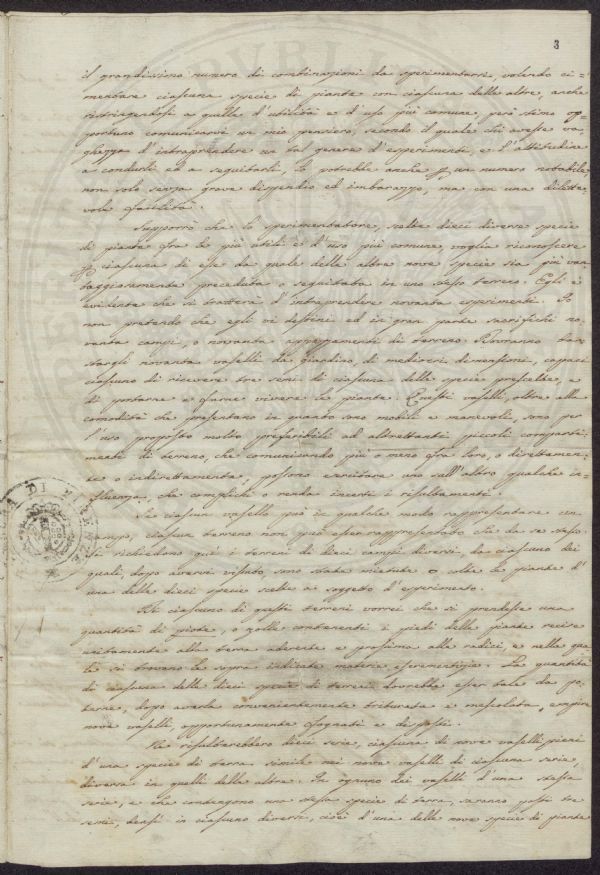 3
il grandissimo numero di combinazioni da sperimentarsi, volendo ci=
mentare ciascuna specie di piante con ciascuna delle altre, anche
ristringendosi a quelle d'utilità e d'uso più comune, però stimo op=
portuno comunicarvi un mio pensiero, secondo il quale chi avesse va=
ghezza d'intraprendere un tal genere d'esperimenti, e l'attitudine
a condurli ed a seguitarli, lo potrebbe anche p un numero notabile
non solo senza grave dispendio ed imbarazzo, ma con una dilette=
vole facilità.
Supporrò che lo sperimentatore, scelte dieci diverse specie
di piante fra le più utili e d'uso più comune, voglia riconoscere
p ciascuna di esse da quale delle altre nove specie sia più van
taggiosamente preceduta o seguitata in uno stesso terreno. Egli è
evidente che si tratterà d'intraprendere novanta esperimenti. Io
non pretendo che egli vi destini ed in gran parte sacrifichi no=
vanta campi, o novanta appezzamenti di terreno. Potranno ba=
stargli novanta vaselli da giardino, di mediocri dimensioni, capaci
ciascuno di ricevere tre semi di ciascuna delle specie prescelte, e
di portarne e farne vivere le piante. Questi vaselli, oltre alla
comodità che presentano in quanto sono mobili e manevoli, sono per
l'uso proposto molto preferibili ad altrettanti piccoli comparti=
menti di terreno, che comunicando più o meno fra loro, o direttamen=
te o indirettamente, possono esercitare uno sull'altro qualche in=
fluenza, che complichi o renda incerti i resultamenti.
Se ciascun vasello può in qualche modo rappresentare un
campo, ciascun terreno non può esser rappresentato che da se stesso.
Si richiedono quì i terreni di dieci campi diversi, da ciascuno dei
quali, dopo avervi vissuto, sono state mietute o colte le piante d'
una delle dieci specie scelte a soggetto d'esperimento.
Di ciascuno di questi terreni vorrei che si prendesse una
quantità di piote, o zolle contenenti i piedi delle piante recise
unitamente alla terra aderente e prossima alle radici, e nella qua=
le si trovano le sopra indicate materie escrementizie. La quantità
di ciascuna delle dieci specie di terra dovrebbe esser tale da po=
terne, dopo averla convenientemente triturata e mescolata, empire
nove vaselli, opportunamente fognati e disposti.
Ne risulterebbero dieci serie, ciascuna di nove vaselli pieni
d'una specie di terra simile nei nove vaselli di ciascuna serie,
diversa in quelli delle altre. In ognuno dei vaselli d'una stessa
serie, e che contengono una stessa specie di terra, saranno posti tre
semi, bensì in ciascuno diversi, cioè d'una delle nove specie di piante